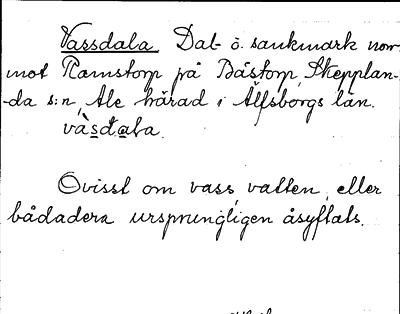 Vassdala Dal o. sankmark norr
mot Ramstorp på Båstorp, Skepplan-
-da s:n, Ale härad i Älfsborgs län.
vàsdala.
Ovisst om vass, vatten, eller
bådadera ursprungligen åsyftats.